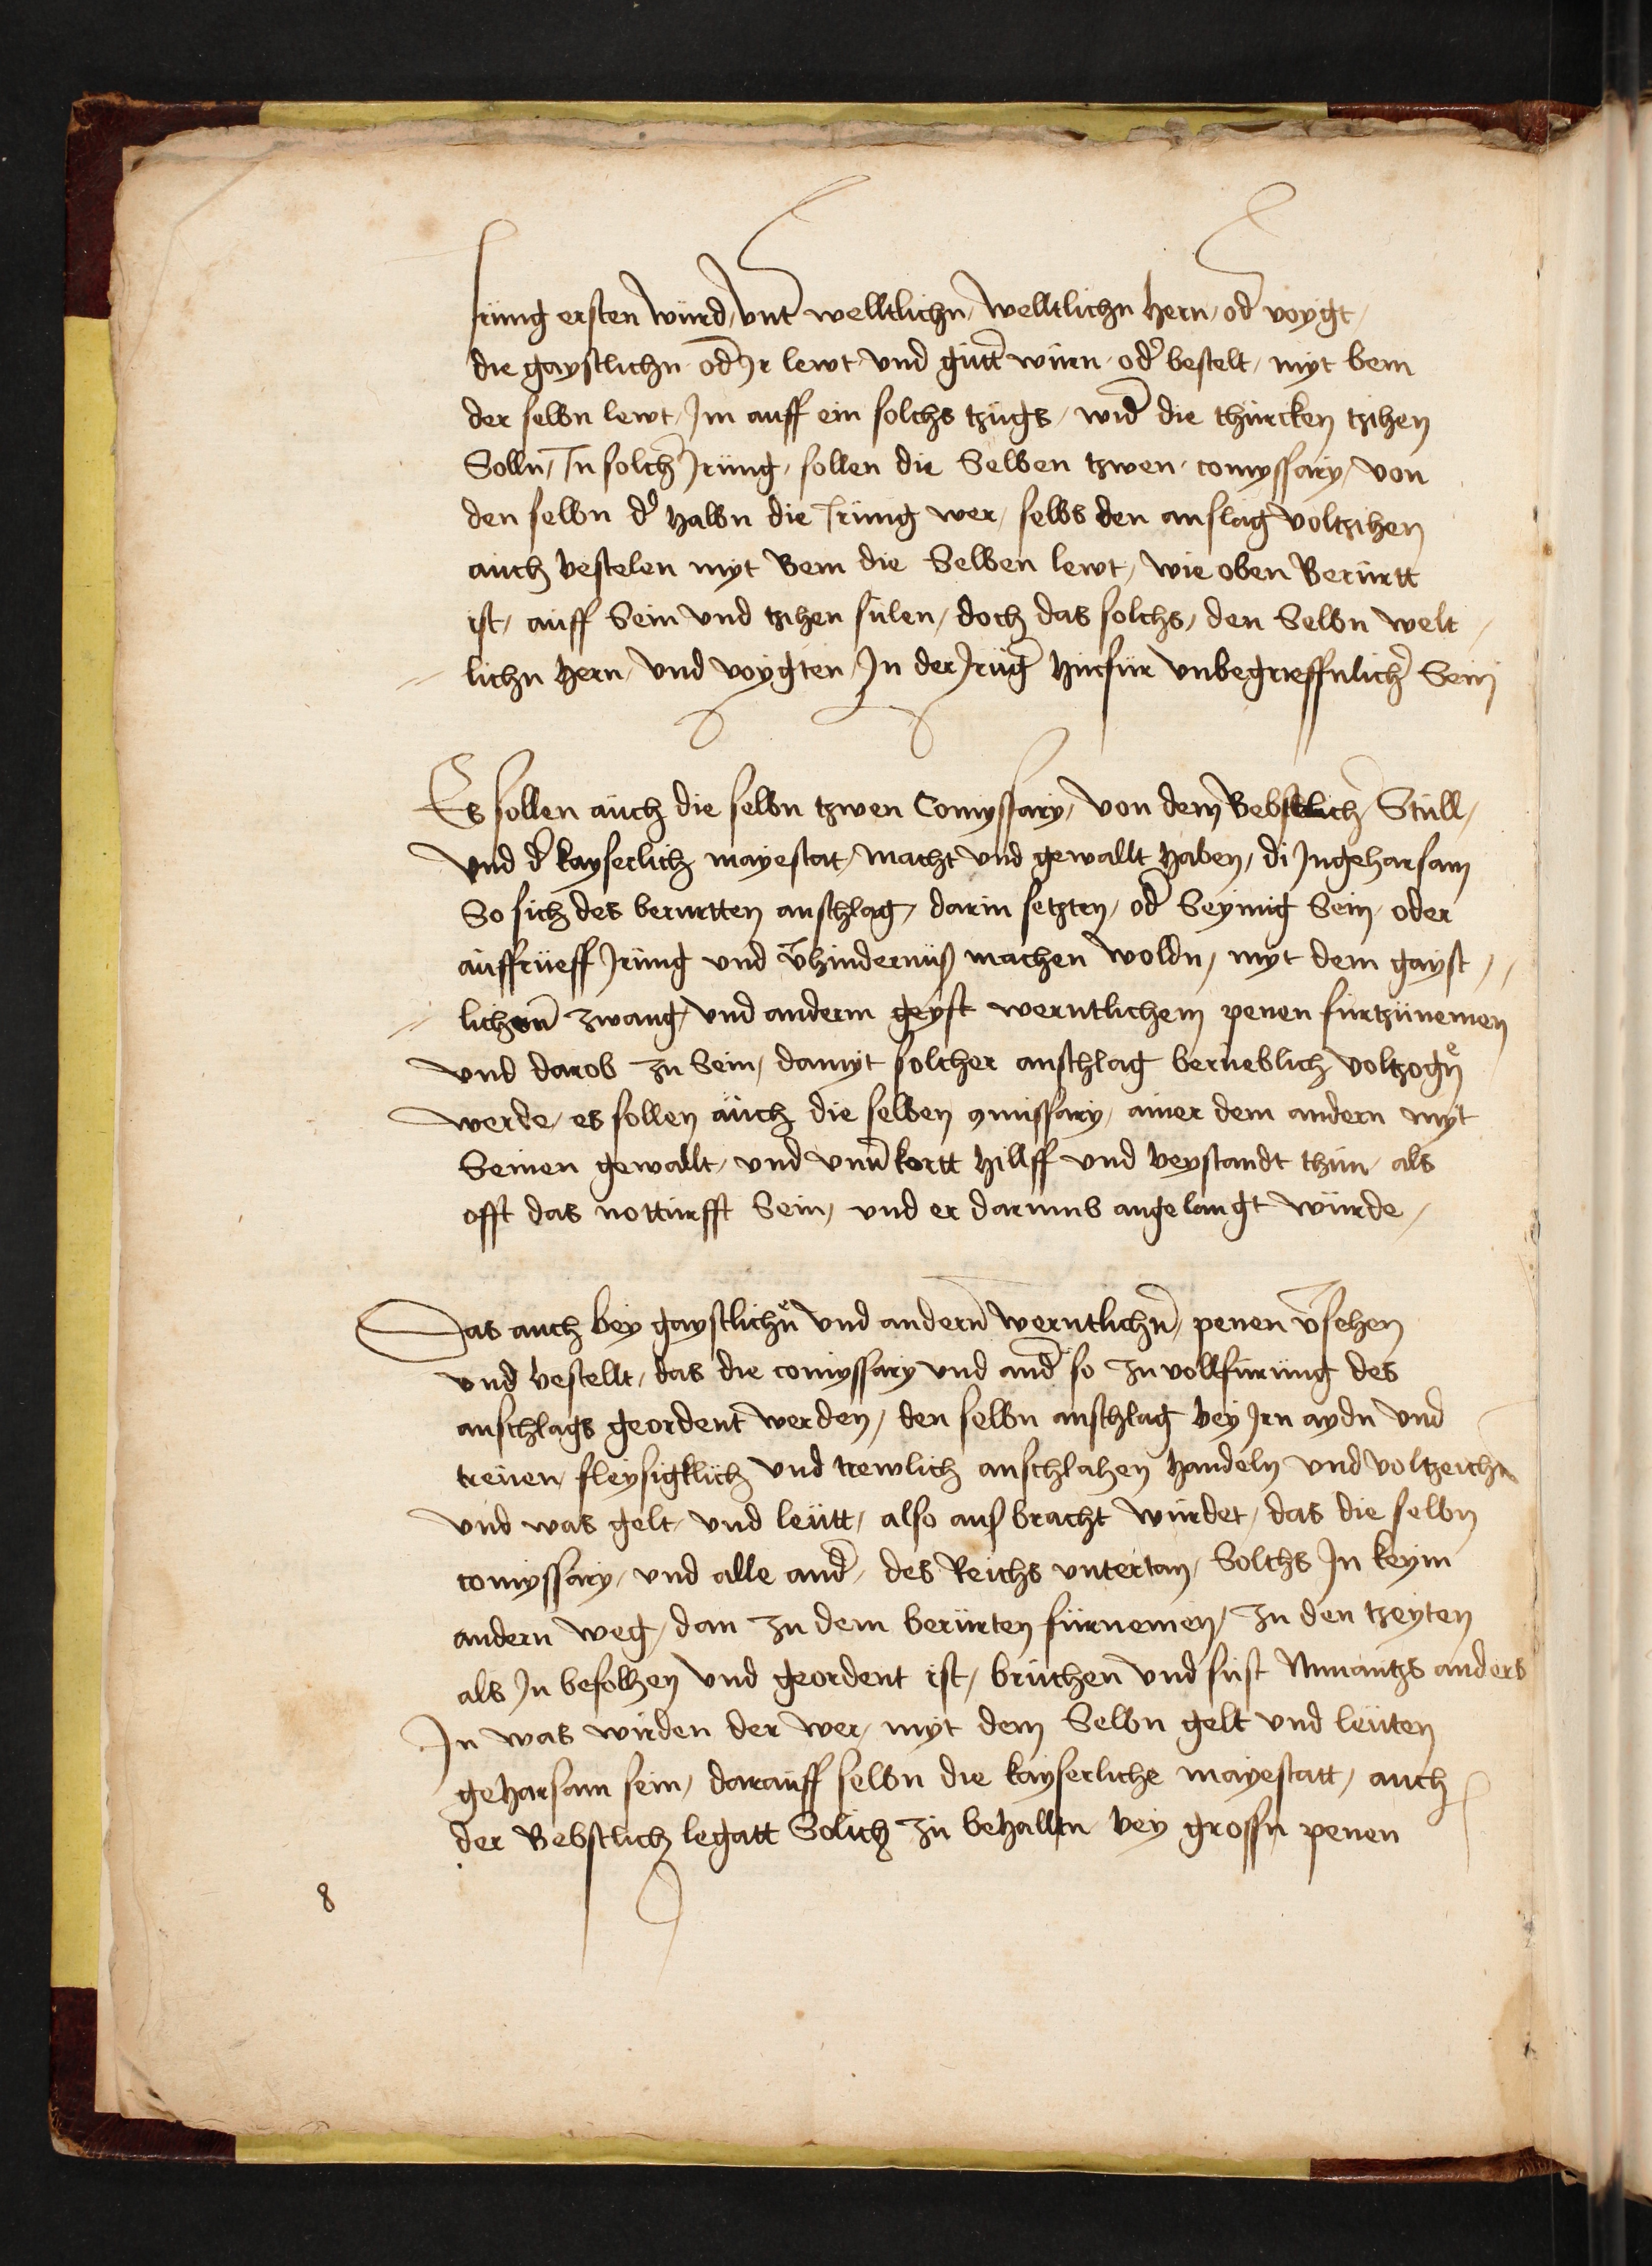 Irüng ersten würd, vnt welltlichn, welltlichn hern, od voÿgt,
die gaystlichn od Ir lewt vnd gütt wurn od bestelt, myt bem
der selbn lewt, Im auff ein solchs tzügs, wid die thürcken tzihen
Solln, In solch Irüng, sollen die Selben tzwen comyssary, von
den selbn d halbn die Irüng wer, selbs den anslag voltzihen
auch bestelen myt Bem die Selben lewt, wie oben Berürtt
ist, auff Sein vnd tzihen sülen, doch das solchs, den Selbn welt
lichn hern, vnd voÿgten, In der Irüg hinfür vnbegrieffnlich Sein
Es sollen auch die selbn tzwen Comyssary, von dem Bebstlich Stüll,
vnd d kayserlich mayestat, macht vnd gewallt haben, di Ingeharsam
So sich des berurtten anschlag, darin setzten, od Seÿmig Sein, oder
auffrüeff Irüng vnd vhindernüß machen woldn, myt dem gayst
lichem zwang, vnd anderm geyst werntlichem penen fürtzünemen
vnd darob zu Sein, damyt solcher anschlag berüeblich voltzogn
werde, es sollen auch die selben 9missary, ainer dem andern myt
Seinen gewallt, vnd vnuerkertt hillff vnd beystandt thün, als
offt das notturfft Sein, vnd er darumb angelangt würde,
Das auch bey gaystlichn vnd andern werntlichn, penen vsehen
vnd bestellt, das die comyssary vnd and so zu vollfürung des
anschlags geordent werden, den selbn anschlag bey Irn aydn vnd
treüen, fleysigklich vnd trewlich anschlahen handeln vnd voltzeichn
vnd was gelt, vnd leütt, also auß bracht würdet, das die selbn
comyssary, vnd alle and, des Reichs vntertan, Solchs In keym
andern weg, dan zu dem berürten fürnemen, zu den tzeyten
als In befolhen vnd geordent ist, brüchen vnd süst Nymantzs anders
In was wirden der wer, myt dem Selbn gelt vnd leüten
geharsam sein, darauff selbn die kayserliche mayestatt, auch
der Bebstlich legatt Solich zu behallten bey grossn penen
8